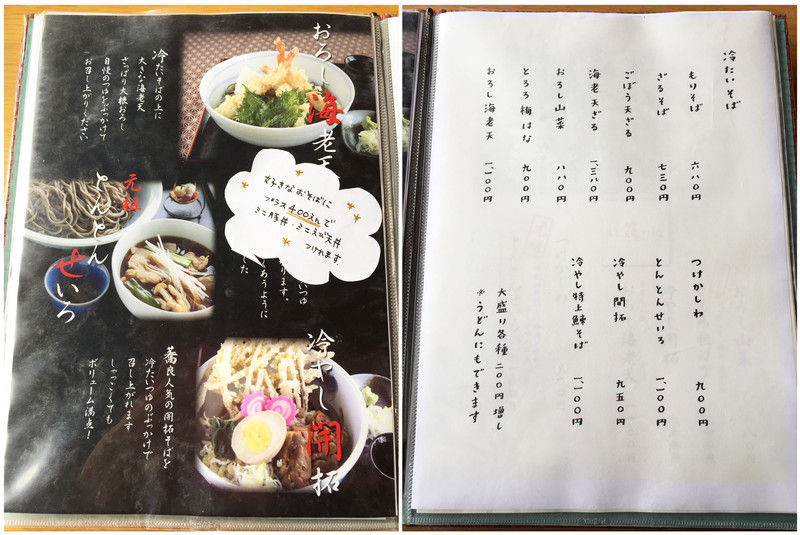 おろし海老天
冷たいそばの上に
大きな海老天
さっぱり大根おろし
自慢のつゆをぶっかけて
お召し上がりください
好きなおそばに
プラス400えんで
ミニ豚丼・ミニえび天丼
つけれます
元祖
とんとん
せいろ
いつゆ
ります。
あうように
した
冷やし開拓
蕎良人気の開拓そばを
冷たいつゆのぶっかけで
召し上がれます
しゃっこくても
ボリューム満点！
冷たいそば
もりそば 六八〇円
ざるそば 七三〇円
ごぼう天ざる 九〇〇円
海老天ざる 一、三八〇円
おろし山菜 八八〇円
とろろ梅はな 九〇〇円
おろし海老天 一、一〇〇円
つけかしわ 九〇〇円
とんとんせいろ 一、一〇〇円
冷やし開拓 九五〇円
冷やし特上鰊そば 一、一〇〇円
大盛り各種 二〇〇円増し
※うどんにもできます